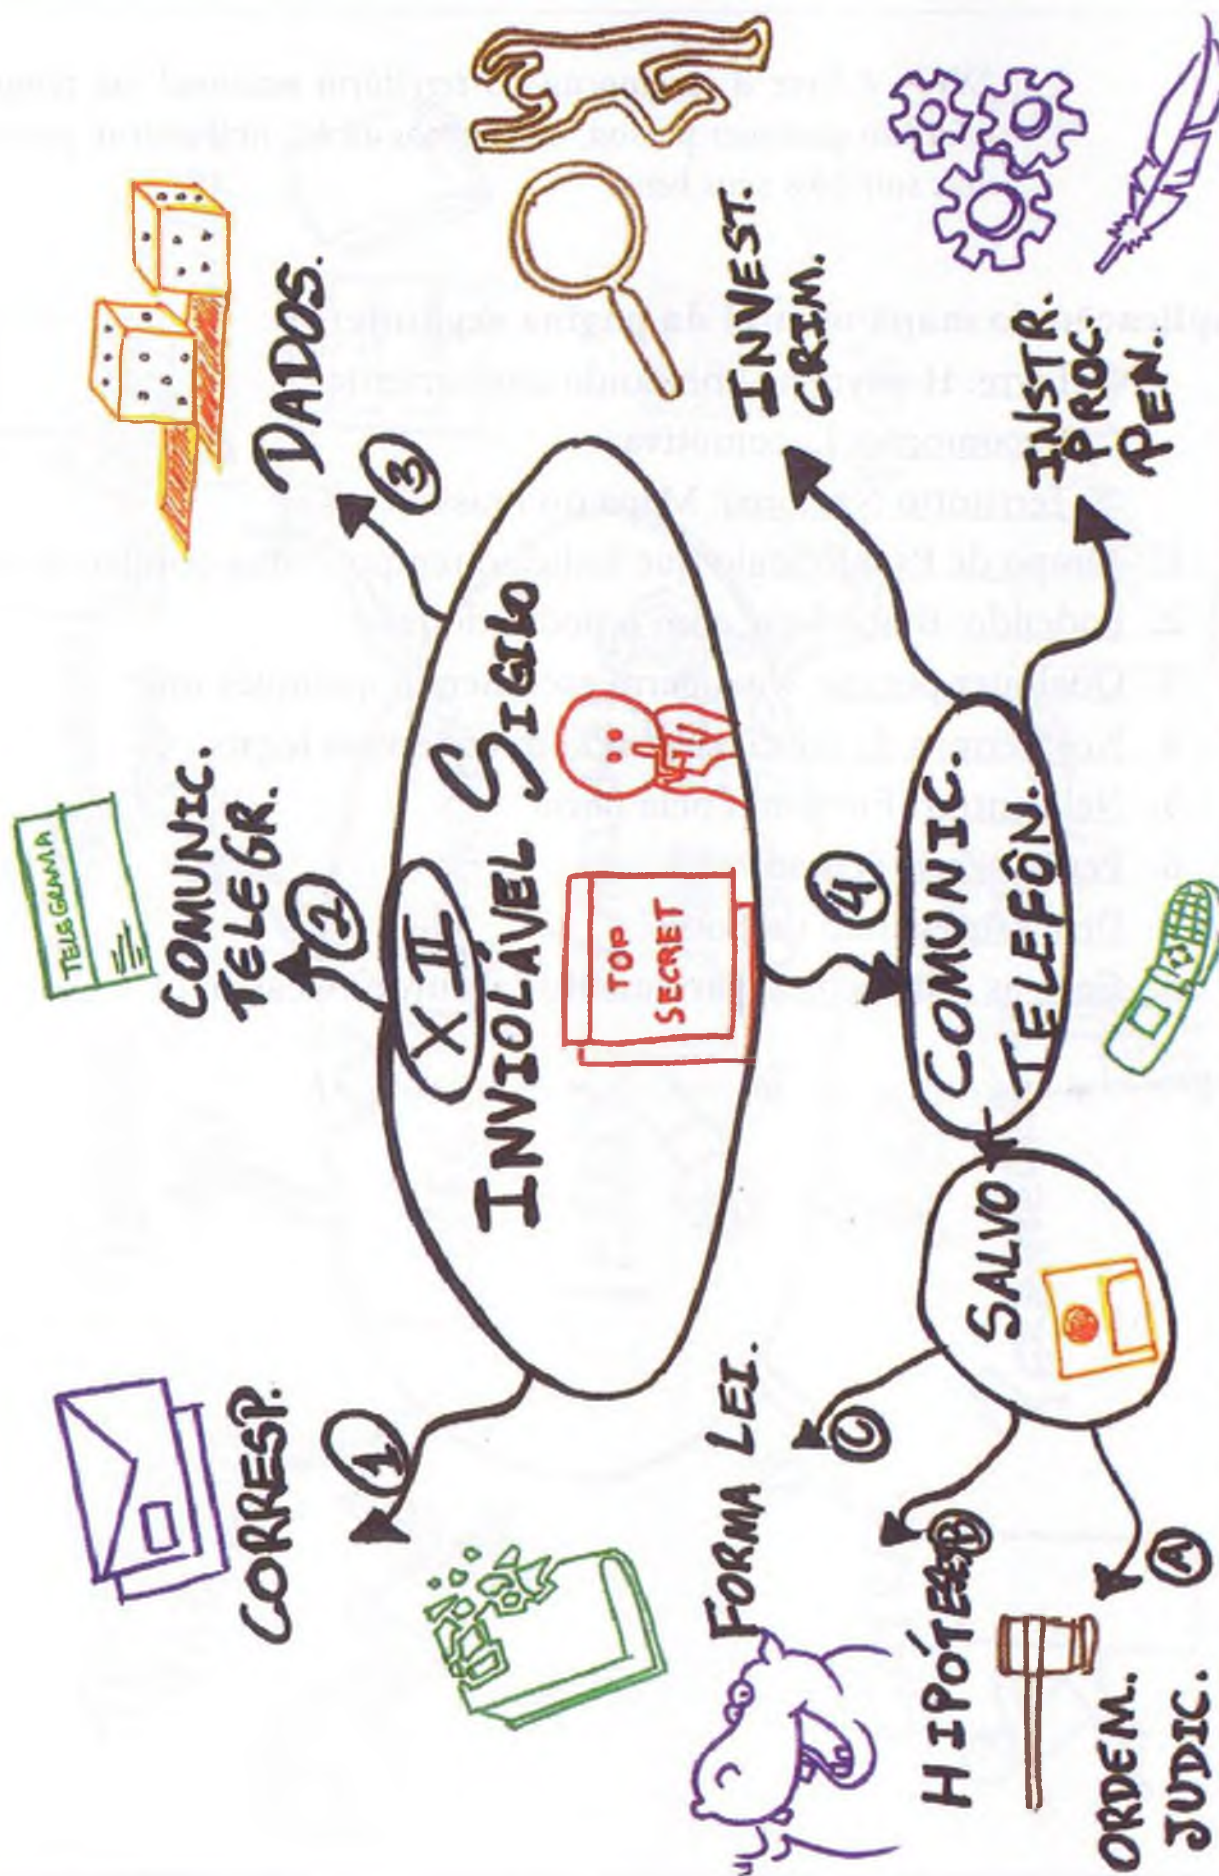 XII
INVIOLÁVEL SIGILO
TOP
SECRET
1
CORRESP.
2
COMUNIC.
TELEGR.
TELEGRAMA
3
DADOS.
4
COMUNIC.
TELEFÔN.
INVEST.
CRIM.
INSTR.
PROC.
PEN.
SALVO
A
ORDEM.
JUDIC.
B
C
FORMA LEI.